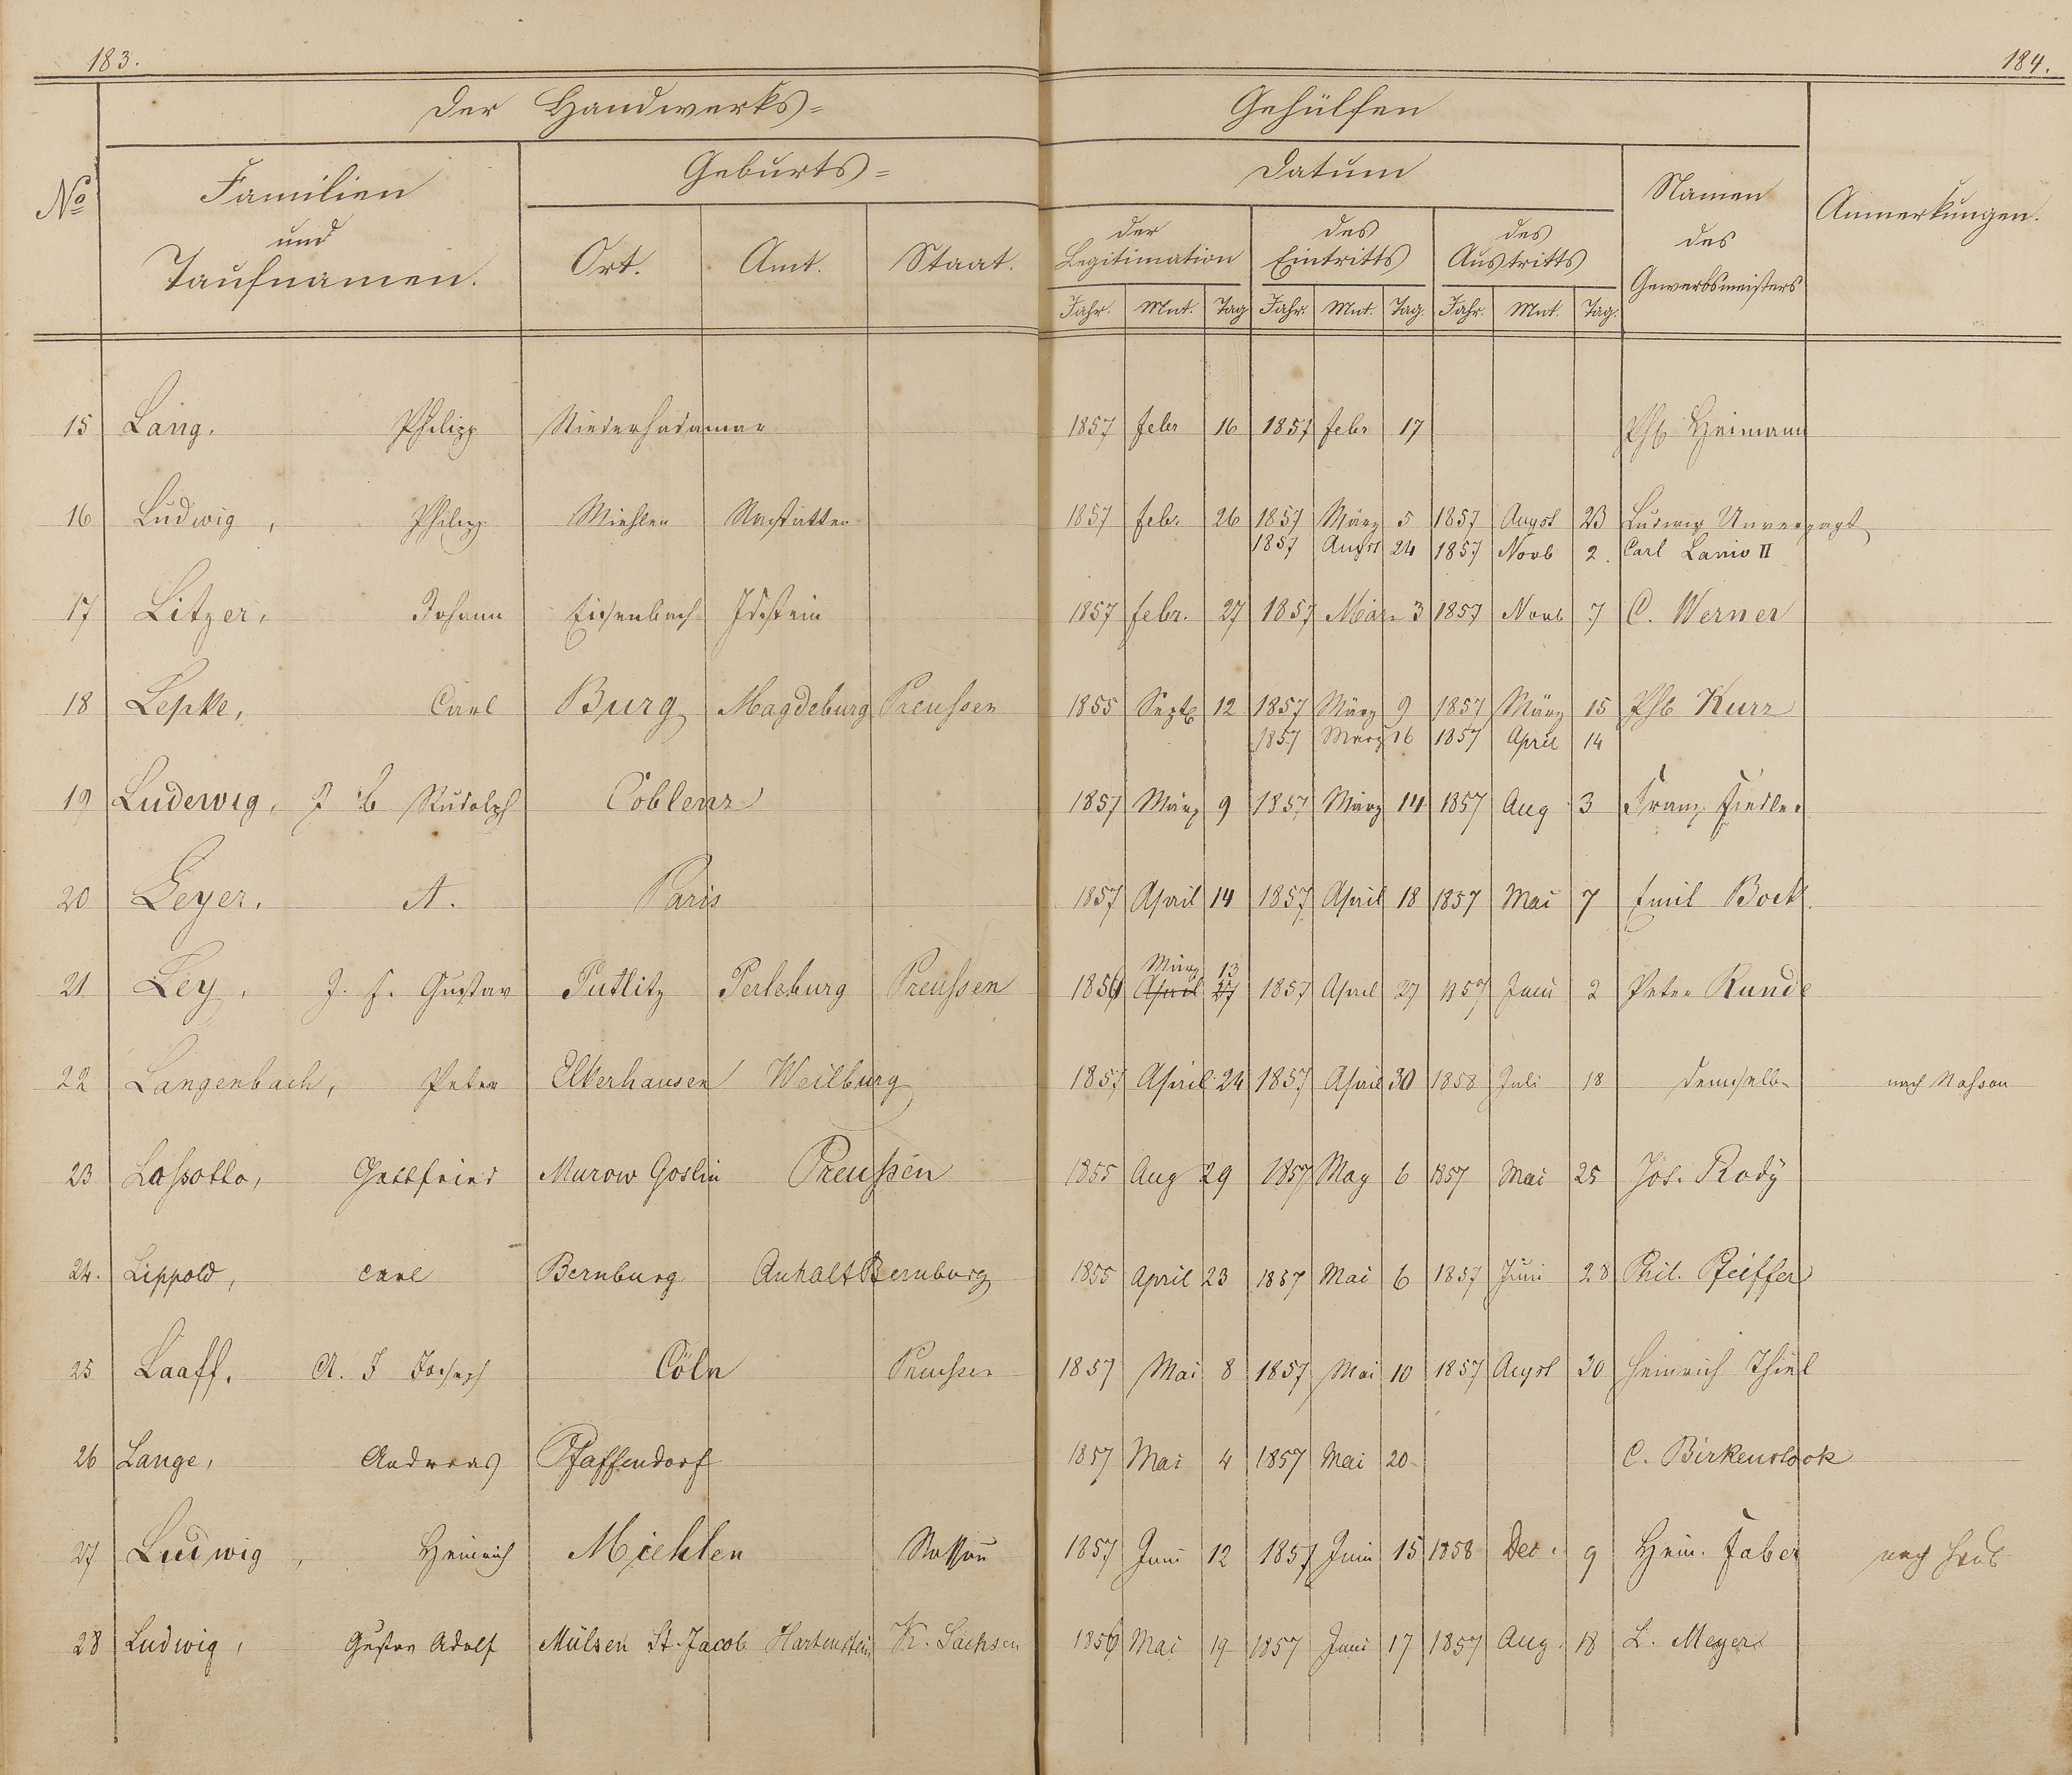 183.
184.
Der Handwerks=
Gehülfen
No
Familien
und
Taufnamen.
Geburts=
Ort. Amt. Staat.
Datum
der Legitimation
des Eintritts
des Austritts
Jahr. Mnt. Tag Jahr. Mnt. Tag. Jahr. Mnt. Tag.
Namen
des
Gewerbsmeisters
Anmerkungen.
15 Lang. Philipp Niederhadamar 1857 Febr 16 1857 Febr 17 Phb Heimann
16 Ludwig, Philipp Miehlen Nastätten 1857 Febr. 26 1857 März 5 1857 Augst 23 Ludwig Unverzagt
1857 Augst 24 1857 Novb 2. Carl Lanio II
17 Litzer, Johann Eisenbach Idstein 1857 Febr. 27 1857 März 3 1857 Novb 7 C. Werner
18 Lepke, Carl Burg Magdeburg Preußen 1855 Septb 12 1857 März 9 1857 März 15 Phb Kurz
1857 März 16 1857 April 14
19 Luderwig, J Rudolph Coblenz 1857 März 9 1857 März 14 1857 Aug 3 Franz Fiedler
20 Leyer. A. Paris 1857 April 14 1857 April 18 1857 Mai 7 Emil Bock
März 13
21 Ley, J. F. Gustav Putlitz Perleburg Preußen 1856 April 27 1857 April 27 1857 Juni 2 Peter Runde
22 Langenbach, Peter Elkerhausen Weilburg 1857 April 24 1857 April 30 1858 Juli 18 demselben nach Nassau
23 Laßotta, Gottfried Murow Goslin Preußen 1855 Aug 29 1857 May 6 1857 Mai 25 Jos. Rody
24. Lippold, Carl Bernburg Anhalt Bernburg 1855 April 23 1857 Mai 6 1857 Juni 28 Phil. Pfeiffer
25 Laaff, A. J Joseph Cöln Preußen 1857 Mai 8 1857 Mai 10 1857 Augst 30 Heinrich Thiel
26 Lange, Andreas Pfaffendorf 1857 Mai 4 1857 Mai 20 C. Birkenstock
27 Ludwig, Heinrich Miehlen Nassau 1857 Juni 12 1857 Juni 15 1858 Dec. 9 Hein. Faber nach
28 Ludwig, Gustav Adolf Mülsen St. Jacob Hartenstein K. Sachsen 1856 Mai 19 1857 Juni 17 1857 Aug. 18 L. Meyer